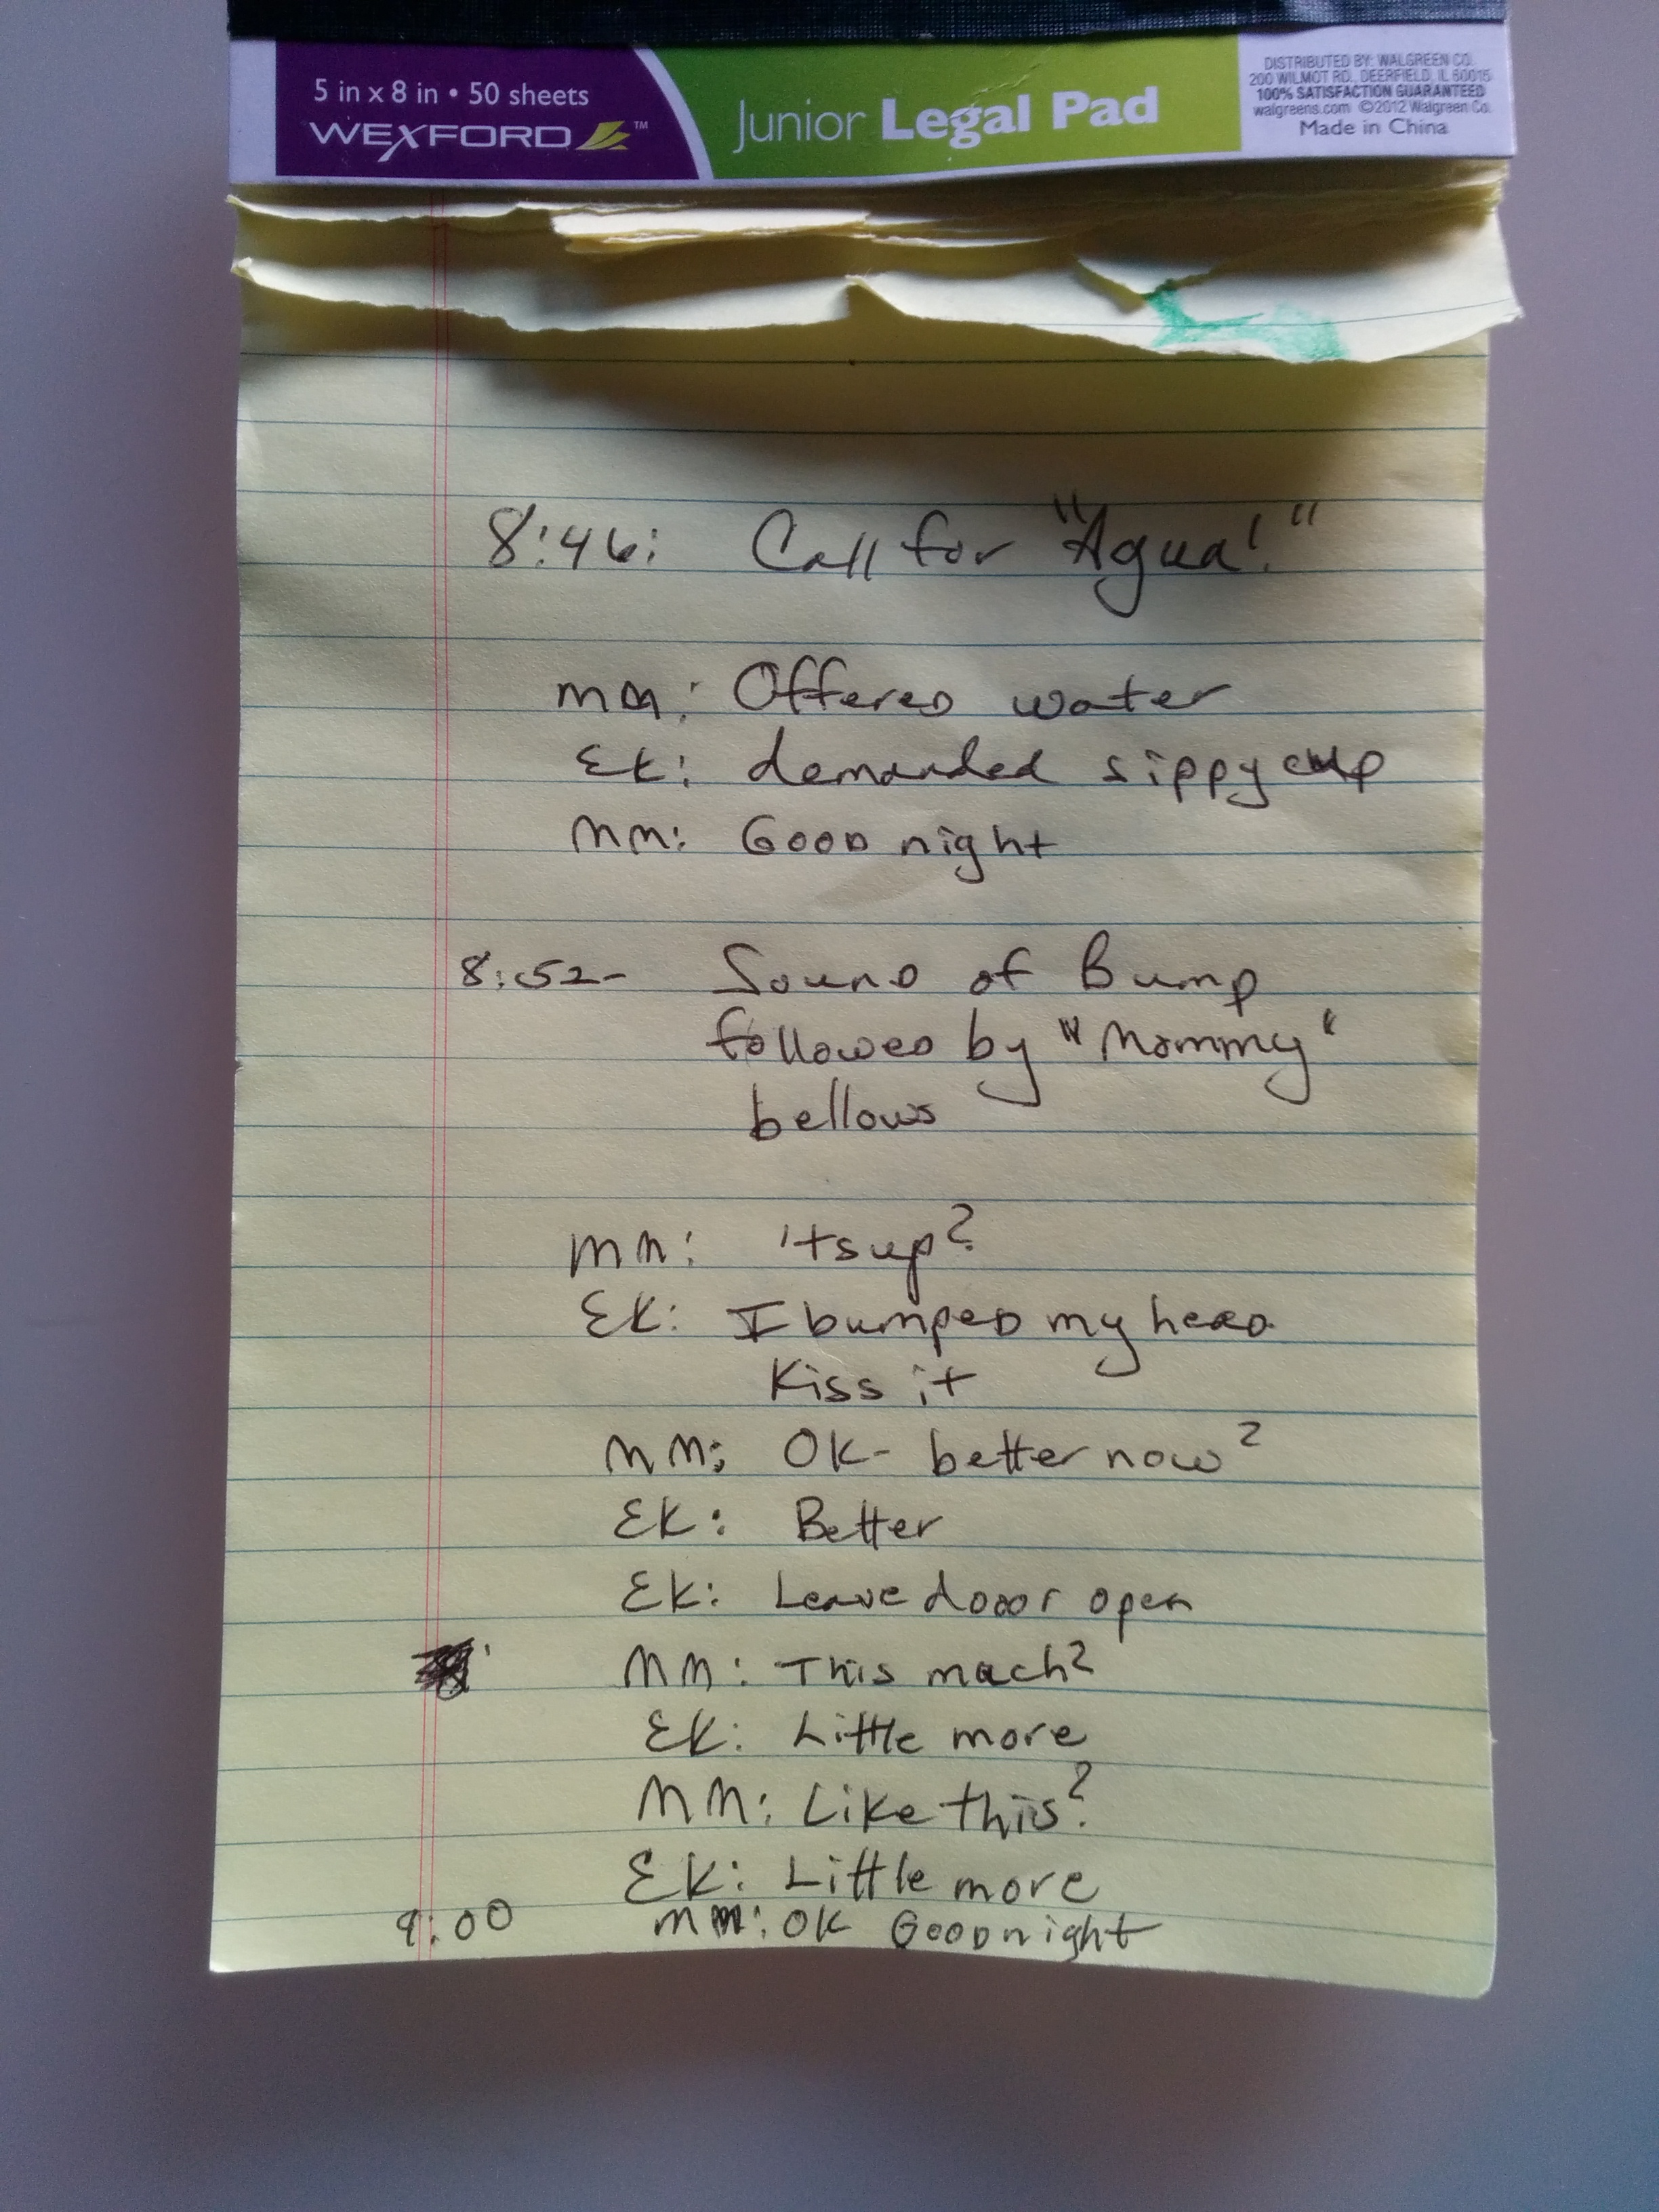 5 in x 8 in • 50 sheets
WEXFORD™
Junior Legal Pad
DISTRIBUTED BY: WALGREEN CO.
200 WILMOT RD., DEERFIELD, IL 60015
100% SATISFACTION GUARANTEED
walgreens.com ©2012 Walgreen Co.
Made in China
8:46: Call for "Agua!"
MM: Offered water
EK: demanded sippy cup
MM: Good night
8:52- Sound of Bump
followed by "Mommy"
bellows
MM: 'tsup?
EK: I bumped my head.
Kiss it
MM: OK- better now?
EK: Better
EK: Leave dooor open
MM: This much?
EK: Little more
MM: Like this?
EK: Little more
9:00 MM: OK Goodnight